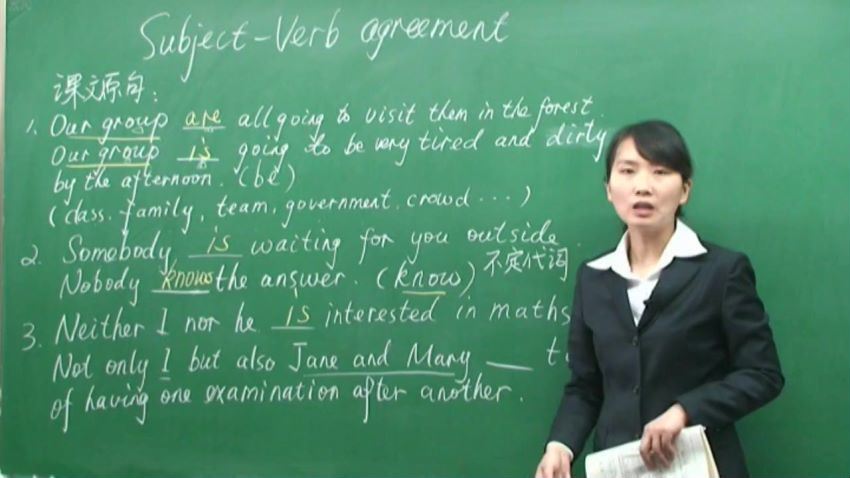 Subject-Verb agreement
课文原句:
1. Our group are all going to visit them in the forest.
Our group is going to be very tired and dirty
by the afternoon. (be)
(class. family. team. government. crowd ...)
2. Somebody is waiting for you outside.
Nobody knows the answer. (know) 不定代词
3. Neither I nor he is interested in maths
Not only I but also Jane and Mary ___
of having one examination after another.